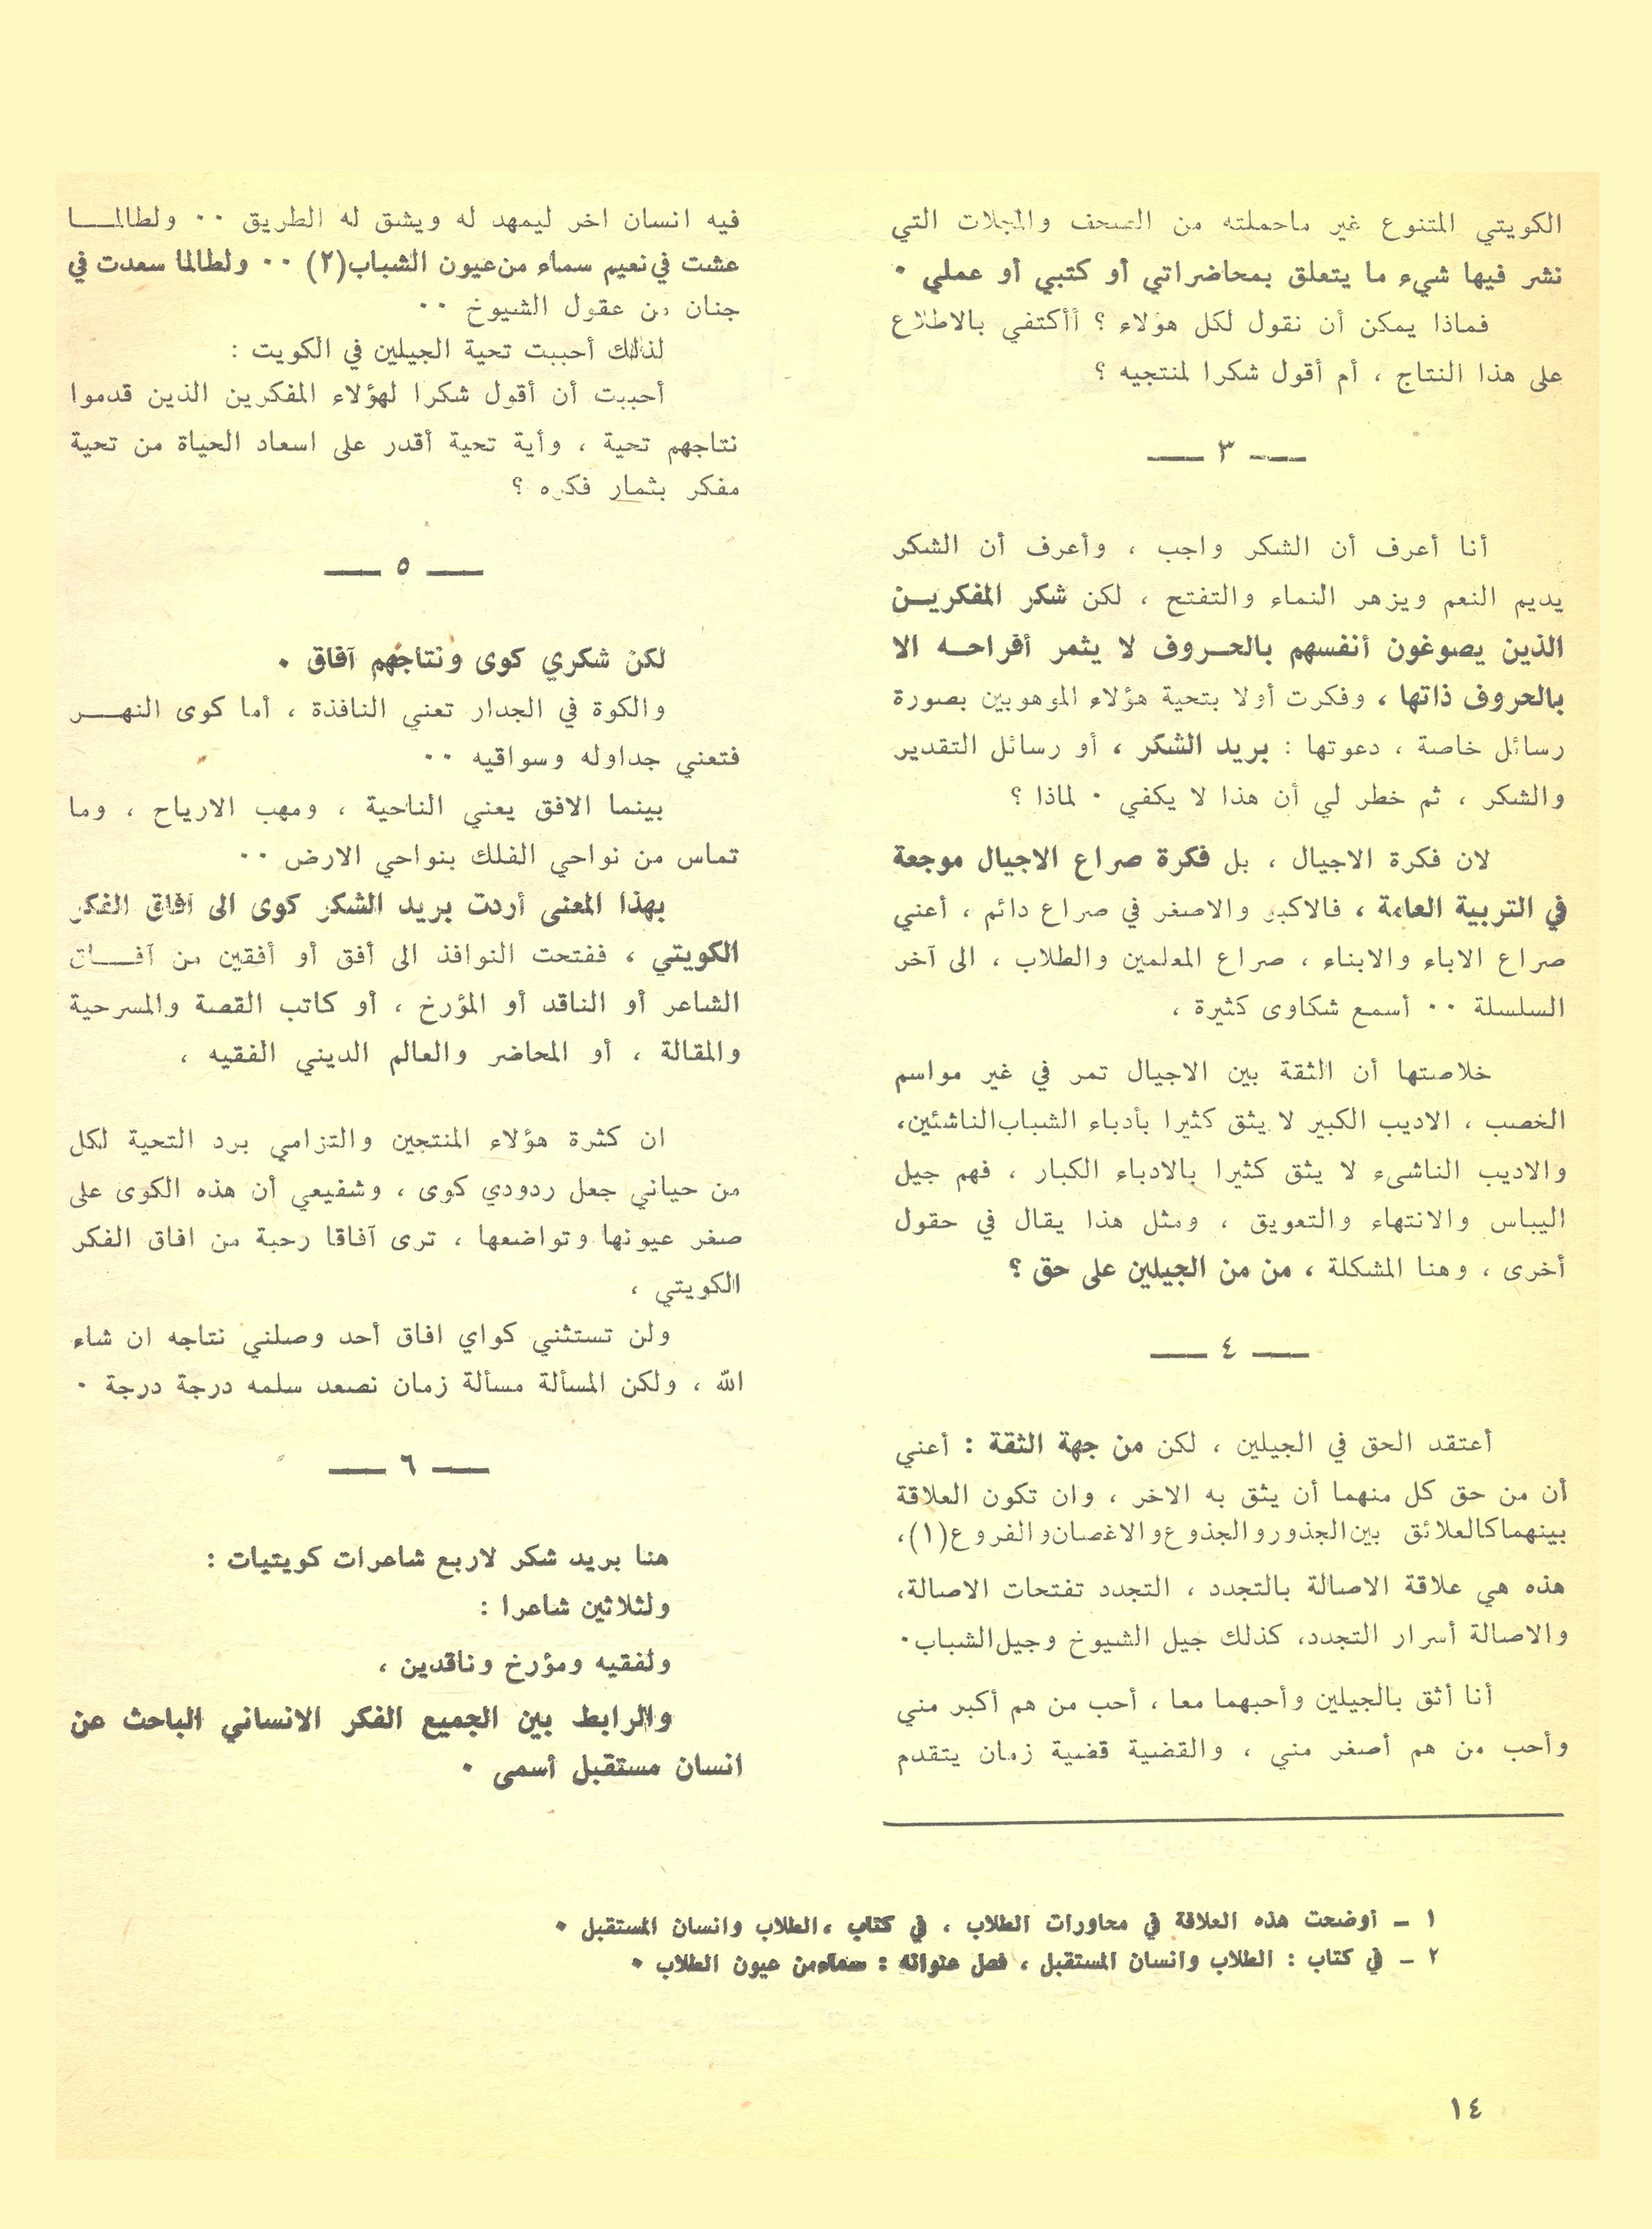 الكويتي المتنوع غير ماحملته من الصحف والمجلات التي
نشر فيها شيء ما يتعلق بمحاضراتي أو كتبي أو عملي ٠
فماذا يمكن أن نقول لكل هؤلاء ؟ أأكتفي بالاطلاع
على هذا النتاج ، أم أقول شكرا لمنتجيه ؟
— ٣ —
أنا أعرف أن الشكر واجب ، وأعرف أن الشكر
يديم النعم ويزهر النماء والتفتح ، لكن شكر المفكريــن
الذين يصوغون أنفسهم بالحــروف لا يثمر أفراحــه الا
بالحروف ذاتها ، وفكرت أولا بتحية هؤلاء الموهوبين بصورة
رسائل خاصة ، دعوتها : بريد الشكر ، أو رسائل التقدير
والشكر ، ثم خطر لي أن هذا لا يكفي ٠ لماذا ؟
لان فكرة الاجيال ، بل فكرة صراع الاجيال موجعة
في التربية العامة ، فالاكبر والاصغر في صراع دائم ، أعني
صراع الاباء والابناء ، صراع المعلمين والطلاب ، الى آخر
السلسلة ٠٠ أسمع شكاوى كثيرة ،
خلاصتها أن الثقة بين الاجيال تمر في غير مواسم
الخصب ، الاديب الكبير لا يثق كثيرا بأدباء الشباب الناشئين،
والاديب الناشىء لا يثق كثيرا بالادباء الكبار ، فهم جيل
اليباس والانتهاء والتعويق ، ومثل هذا يقال في حقول
أخرى ، وهنا المشكلة ، من من الجيلين على حق ؟
— ٤ —
أعتقد الحق في الجيلين ، لكن من جهة الثقة : أعني
أن من حق كل منهما أن يثق به الاخر ، وان تكون العلاقة
بينهما كالعلائق بين الجذور والجذوع والاغصان والفروع(١)،
هذه هي علاقة الاصالة بالتجدد ، التجدد تفتحات الاصالة،
والاصالة أسرار التجدد، كذلك جيل الشيوخ وجيل الشباب٠
أنا أثق بالجيلين وأحبهما معا ، أحب من هم أكبر مني
وأحب من هم أصغر مني ، والقضية قضية زمان يتقدم
فيه انسان اخر ليمهد له ويشق له الطريق ٠٠ ولطالمــا
عشت في نعيم سماء من عيون الشباب(٢) ٠٠ ولطالما سعدت في
جنان من عقول الشيوخ ٠٠
لذلك أحببت تحية الجيلين في الكويت :
أحببت أن أقول شكرا لهؤلاء المفكرين الذين قدموا
نتاجهم تحية ، وأية تحية أقدر على اسعاد الحياة من تحية
مفكر بثمار فكره ؟
— ٥ —
لكن شكري كوى ونتاجهم آفاق ٠
والكوة في الجدار تعني النافذة ، أما كوى النهــر
فتعني جداوله وسواقيه ٠٠
بينما الافق يعني الناحية ، ومهب الارياح ، وما
تماس من نواحي الفلك بنواحي الارض ٠٠
بهذا المعنى أردت بريد الشكر كوى الى آفاق الفكر
الكويتي ، ففتحت النوافذ الى أفق أو أفقين من آفــاق
الشاعر أو الناقد أو المؤرخ ، أو كاتب القصة والمسرحية
والمقالة ، أو المحاضر والعالم الديني الفقيه ،
ان كثرة هؤلاء المنتجين والتزامي برد التحية لكل
من حياني جعل ردودي كوى ، وشفيعي أن هذه الكوى على
صغر عيونها وتواضعها ، ترى آفاقا رحبة من افاق الفكر
الكويتي ،
ولن تستثني كواي افاق أحد وصلني نتاجه ان شاء
الله ، ولكن المسألة مسألة زمان نصعد سلمه درجة درجة ٠
— ٦ —
هنا بريد شكر لاربع شاعرات كويتيات :
ولثلاثين شاعرا :
ولفقيه ومؤرخ وناقدين ،
والرابط بين الجميع الفكر الانساني الباحث عن
انسان مستقبل أسمى ٠
١ ـ أوضحت هذه العلاقة في محاورات الطلاب ، في كتاب ،الطلاب وانسان المستقبل ٠
٢ ـ في كتاب : الطلاب وانسان المستقبل ، فصل عنوانه : سماء من عيون الطلاب ٠
١٤